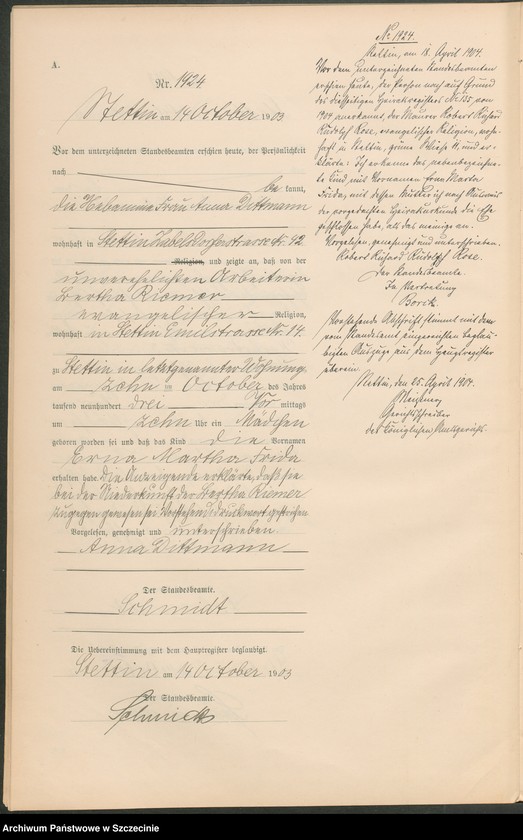 A.
Nr. 1424
Stettin am 14 October 1903
Vor dem unterzeichneten Standesbeamten erschien heute, der Persönlichkeit
nach be kannt,
die Hebamme Frau Anna Dittmann
wohnhaft in Stettin Zabelsdorferstrasse Nr. 92
Religion, und zeigte an, daß von der
unverehelichten Arbeiterin
Bertha Riemer
evangelischer Religion,
wohnhaft in Stettin Emilstrasse Nr. 14
zu Stettin in letztgenannter Wohnung
am zehn ten October des Jahres
tausend neunhundert drei Vor mittags
um zehn Uhr ein Mädchen
geboren worden sei und daß das Kind die Vornamen
Erna Martha Frida
erhalten habe. Die Anzeigende erklärte, daß sie
bei der Niederkunft der Bertha Riemer
zugegen gewesen sei. Vorstehend 1 Druckwort gestrichen
Vorgelesen, genehmigt und unterschrieben
Anna Dittmann
Der Standesbeamte.
Schmidt
Die Uebereinstimmung mit dem Hauptregister beglaubigt.
Stettin am 14 October 1903
Der Standesbeamte.
Schmidt
No 1424.
Stettin, am 18. April 1904.
Vor dem unterzeichneten Standesbeamten
erschien heute, der Person nach auf Grund
des diesseitigen Heiratsregisters von
1904 anerkannt, der Maurer Robert Richard
Rudolph Rose, evangelischer Religion, wohn-
haft in Stettin, grüne Wiese und er-
klärte: Ich erkenne das nebenbezeichne-
te Kind, mit Vornamen Erna Martha
Frida, mit dessen Mutter ich nach Ausweis
der vorgedachten Heiratsurkunde die Ehe
geschlossen habe, als das meinige an.
Vorgelesen, genehmigt und unterschrieben.
Robert Richard Rudolph Rose.
Der Standesbeamte.
In Vertretung
Vorstehende Abschrift stimmt mit dem
vom Standesamt eingereichten beglau-
bigten Auszuge aus dem Hauptregister
überein.
Stettin, den 25. April 1904.
Gerichtsschreiber
des Königlichen Amtsgerichts.
Archiwum Państwowe w Szczecinie